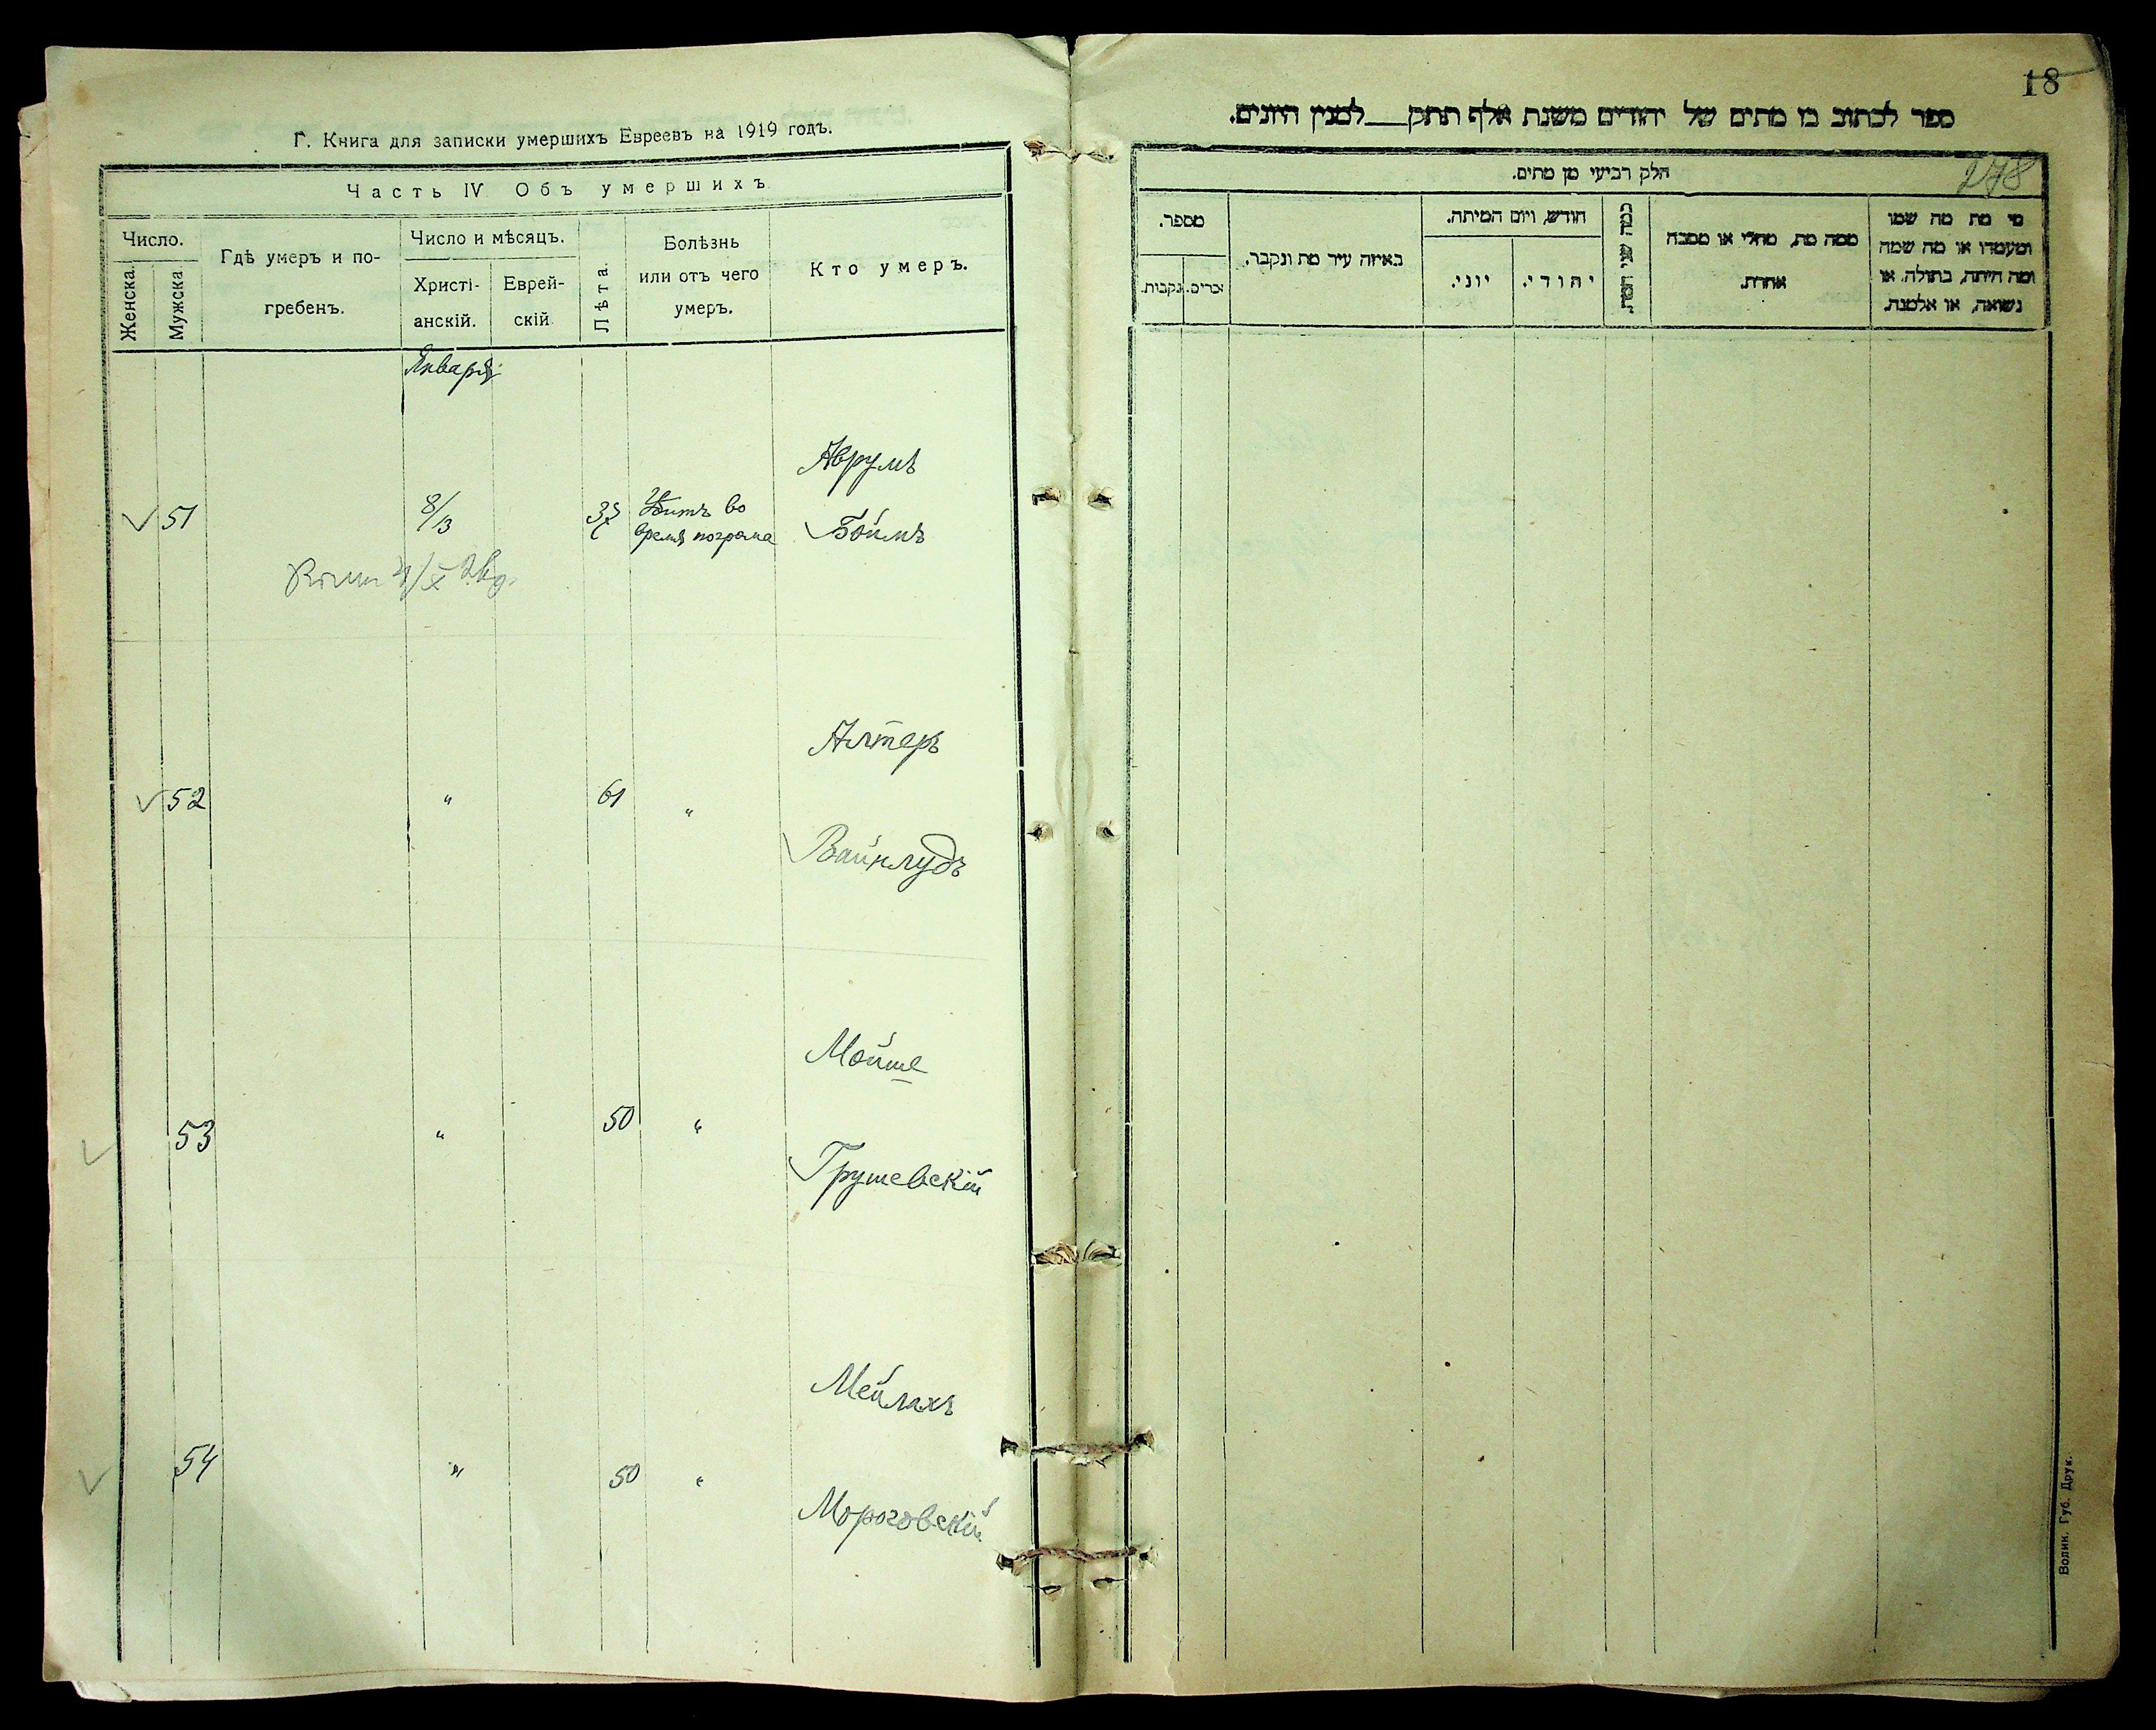 Г. Книга для записки умершихъ Евреевъ на 1919 годъ.
Часть IV Объ умершихъ
Число.
Женска.
Мужска
Гдѣ умеръ и по-
гребенъ.
Число и мѣсяцъ.
Христі-
анскій.
Еврей-
скій
Лѣта.
Болѣзнь
или отъ чего
умеръ.
Кто умеръ.
Января
Аврумъ
51
8/13
Убитъ во
время погрома
Боймъ
Алтеръ
52
"
61
"
Вайнлудъ
Мойше
53
"
50
"
Грушевскій
Мейлахъ
54
"
50
"
Мороговскій
18
ספר לכתוב בו מתים של יהודים משנת אלף תתק למנין היונים.
278
חלק רביעי מן מתים.
מי מת מה שמו
ומעמדו או מה שמה
ומה היתה, בתולה, או
נשואה, או אלמנה.
ממה מת, מחלי או מסבה
אחרת.
כמה שני המת.
חודש, ויום המיתה.
יהודי.
יוני.
באיזה עיר מת ונקבר.
מספר.
זכרים.
נקבות.
Волин. Губ. Друк.